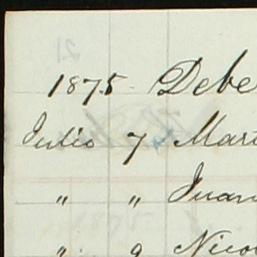 1875 Debe
Julio 7 Mart
" " Juan
" 9 Nico